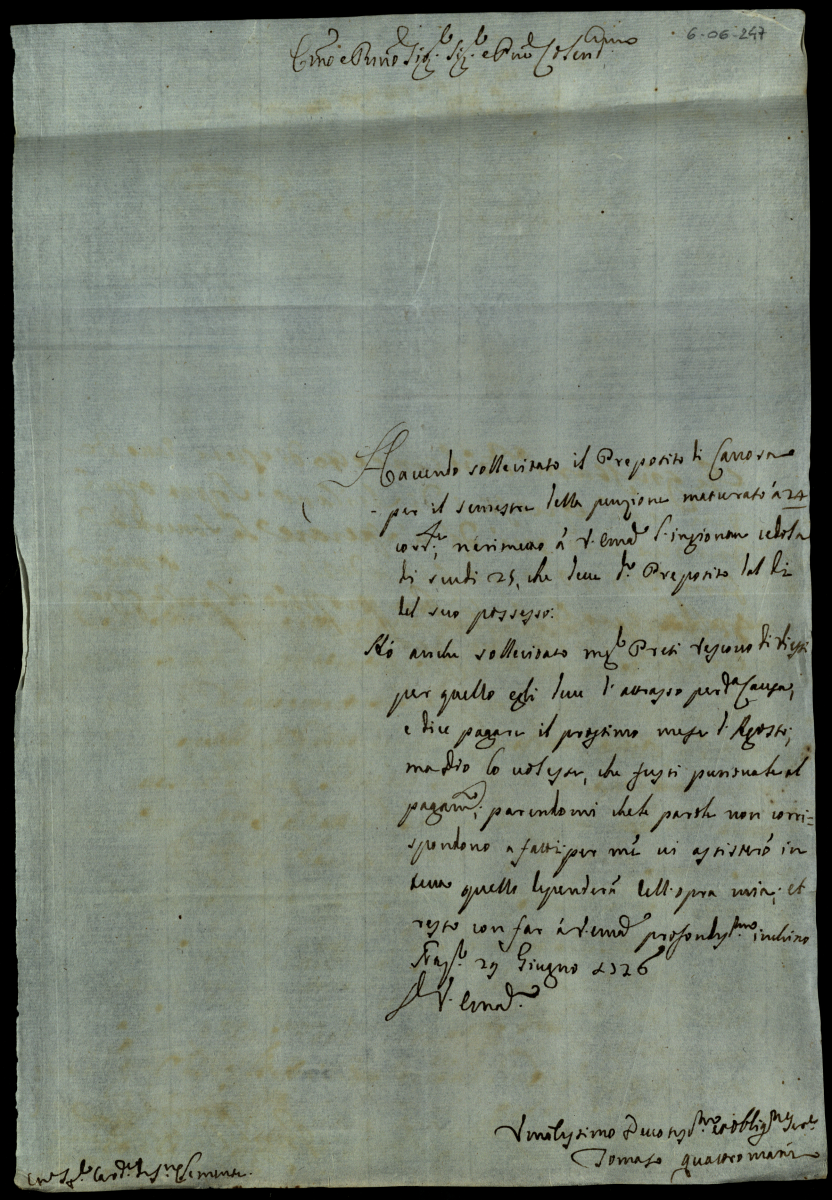 6-06-247
Em̃o e Rm̃o Sigr. Sigr. e Pñe Colend.mo
Havendo sollecitato il Preposito di Canosa
per il semestre della penzione maturato à 24
cor.te, né rimetto à V. Em̃a l'ingionta cedola
di scudi 25, che deve d.o Preposito dal dì
del suo possesso.
Hò anche sollecitato mg.r Preti Vescovo di Viesti
per quello egli deve d'attrasso per d.a Causa,
e dice pagare il prossimo mese d'Agosto,
ma Dio lo volesse, che fussi puntuale al
pagam.to; parendomi che le parole non corri=
spondono a fatti: per me vi assisterò in
tutto quello dependerà dell'opra mia; et
resto con far à V. Em̃a profondiss.mo inchino
Nap.li 29 Giugno 1726
D. V. Em̃a
Umilissimo Devotiss.mo et oblig.mo Ser.re
Tomaso Quattromani
Em̃o Sg.r Card.le S. Clemente